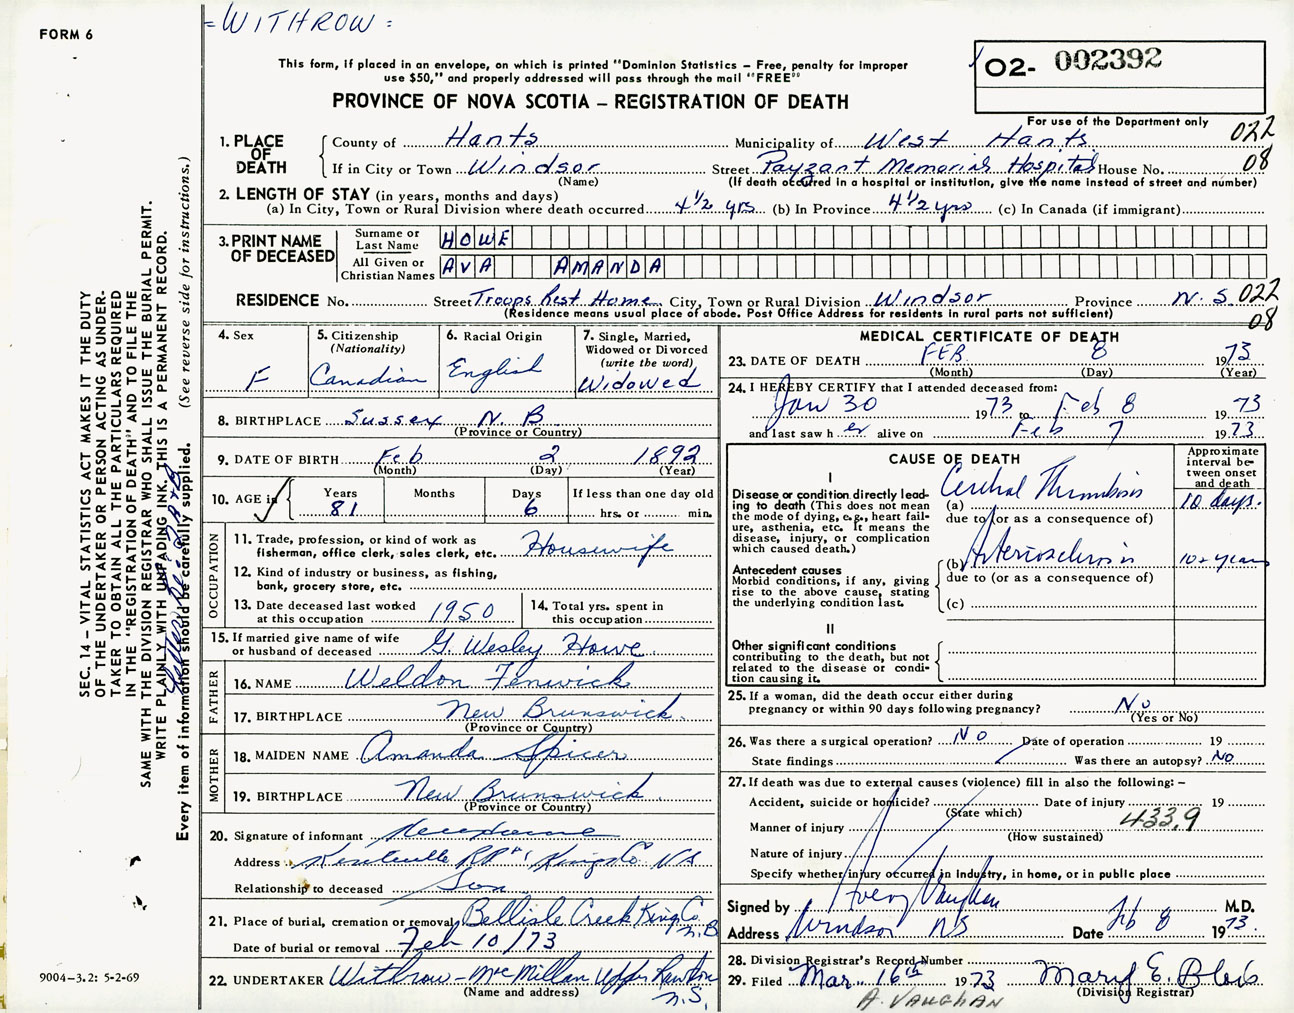 = WITHROW =
FORM 6
This form, if placed in an envelope, on which is printed "Dominion Statistics – Free, penalty for improper
use $50," and properly addressed will pass through the mail "FREE"
O2- 002392
PROVINCE OF NOVA SCOTIA – REGISTRATION OF DEATH
For use of the Department only
022
08
1. PLACE OF DEATH
County of Hants Municipality of West Hants
If in City or Town Windsor Street Payzant Memorial Hospital House No.
(Name) (If death occurred in a hospital or institution, give the name instead of street and number)
2. LENGTH OF STAY (in years, months and days)
(a) In City, Town or Rural Division where death occurred 4½ yrs (b) In Province 4½ yrs (c) In Canada (if immigrant)
3. PRINT NAME OF DECEASED
Surname or Last Name HOWE
All Given or Christian Names AVA AMANDA
RESIDENCE No. Street Troops Rest Home City, Town or Rural Division Windsor Province N.S. 022
(Residence means usual place of abode. Post Office Address for residents in rural parts not sufficient) 08
4. Sex F
5. Citizenship (Nationality) Canadian
6. Racial Origin English
7. Single, Married, Widowed or Divorced (write the word) Widowed
8. BIRTHPLACE Sussex N.B
(Province or Country)
9. DATE OF BIRTH Feb 2 1892
(Month) (Day) (Year)
10. AGE in Years Months Days If less than one day old
81 6 hrs. or min.
OCCUPATION
11. Trade, profession, or kind of work as fisherman, office clerk, sales clerk, etc. Housewife
12. Kind of industry or business, as fishing, bank, grocery store, etc.
13. Date deceased last worked at this occupation 1950
14. Total yrs. spent in this occupation
15. If married give name of wife or husband of deceased G. Wesley Howe
FATHER
16. NAME Weldon Fenwick
17. BIRTHPLACE New Brunswick
(Province or Country)
MOTHER
18. MAIDEN NAME Amanda Spicer
19. BIRTHPLACE New Brunswick
(Province or Country)
20. Signature of informant
Address Kentville RR #1, Kings Co NS
Relationship to deceased Son
21. Place of burial, cremation or removal Bellisle Creek King Co. N.B
Date of burial or removal Feb 10/73
22. UNDERTAKER Withrow – McMillan Upper Rawdon N.S.
(Name and address)
MEDICAL CERTIFICATE OF DEATH
23. DATE OF DEATH FEB 8 1973
(Month) (Day) (Year)
24. I HEREBY CERTIFY that I attended deceased from:
Jan 30 1973 to Feb 8 1973
and last saw her alive on Feb 7 1973
CAUSE OF DEATH
Approximate interval between onset and death
I
Disease or condition directly leading to death (This does not mean the mode of dying, e.g., heart failure, asthenia, etc. It means the disease, injury, or complication which caused death.)
(a) Cerebral Thrombosis 10 days.
due to (or as a consequence of)
Antecedent causes
Morbid conditions, if any, giving rise to the above cause, stating the underlying condition last.
(b) Arteriosclerosis 10+ years
due to (or as a consequence of)
(c)
II
Other significant conditions
contributing to the death, but not related to the disease or condition causing it.
25. If a woman, did the death occur either during pregnancy or within 90 days following pregnancy? No
(Yes or No)
26. Was there a surgical operation? NO Date of operation 19
State findings Was there an autopsy? NO
27. If death was due to external causes (violence) fill in also the following: –
Accident, suicide or homicide? Date of injury 19
(State which)
Manner of injury 433.9
(How sustained)
Nature of injury
Specify whether injury occurred in Industry, in home, or in public place
Signed by Avery Vaughan M.D.
Address Windsor NS Date Feb 8 1973
28. Division Registrar's Record Number
29. Filed Mar. 16th 1973 Mary E.
(Division Registrar)
A. VAUGHAN
SEC. 14 – VITAL STATISTICS ACT MAKES IT THE DUTY
OF THE UNDERTAKER OR PERSON ACTING AS UNDERTAKER
TO OBTAIN ALL THE PARTICULARS REQUIRED
IN THE "REGISTRATION OF DEATH" AND TO FILE THE
SAME WITH THE DIVISION REGISTRAR WHO SHALL ISSUE THE BURIAL PERMIT.
WRITE PLAINLY WITH UNFADING INK. THIS IS A PERMANENT RECORD.
Every item of information should be carefully supplied. (See reverse side for instructions.)
9004-3.2: 5-2-69